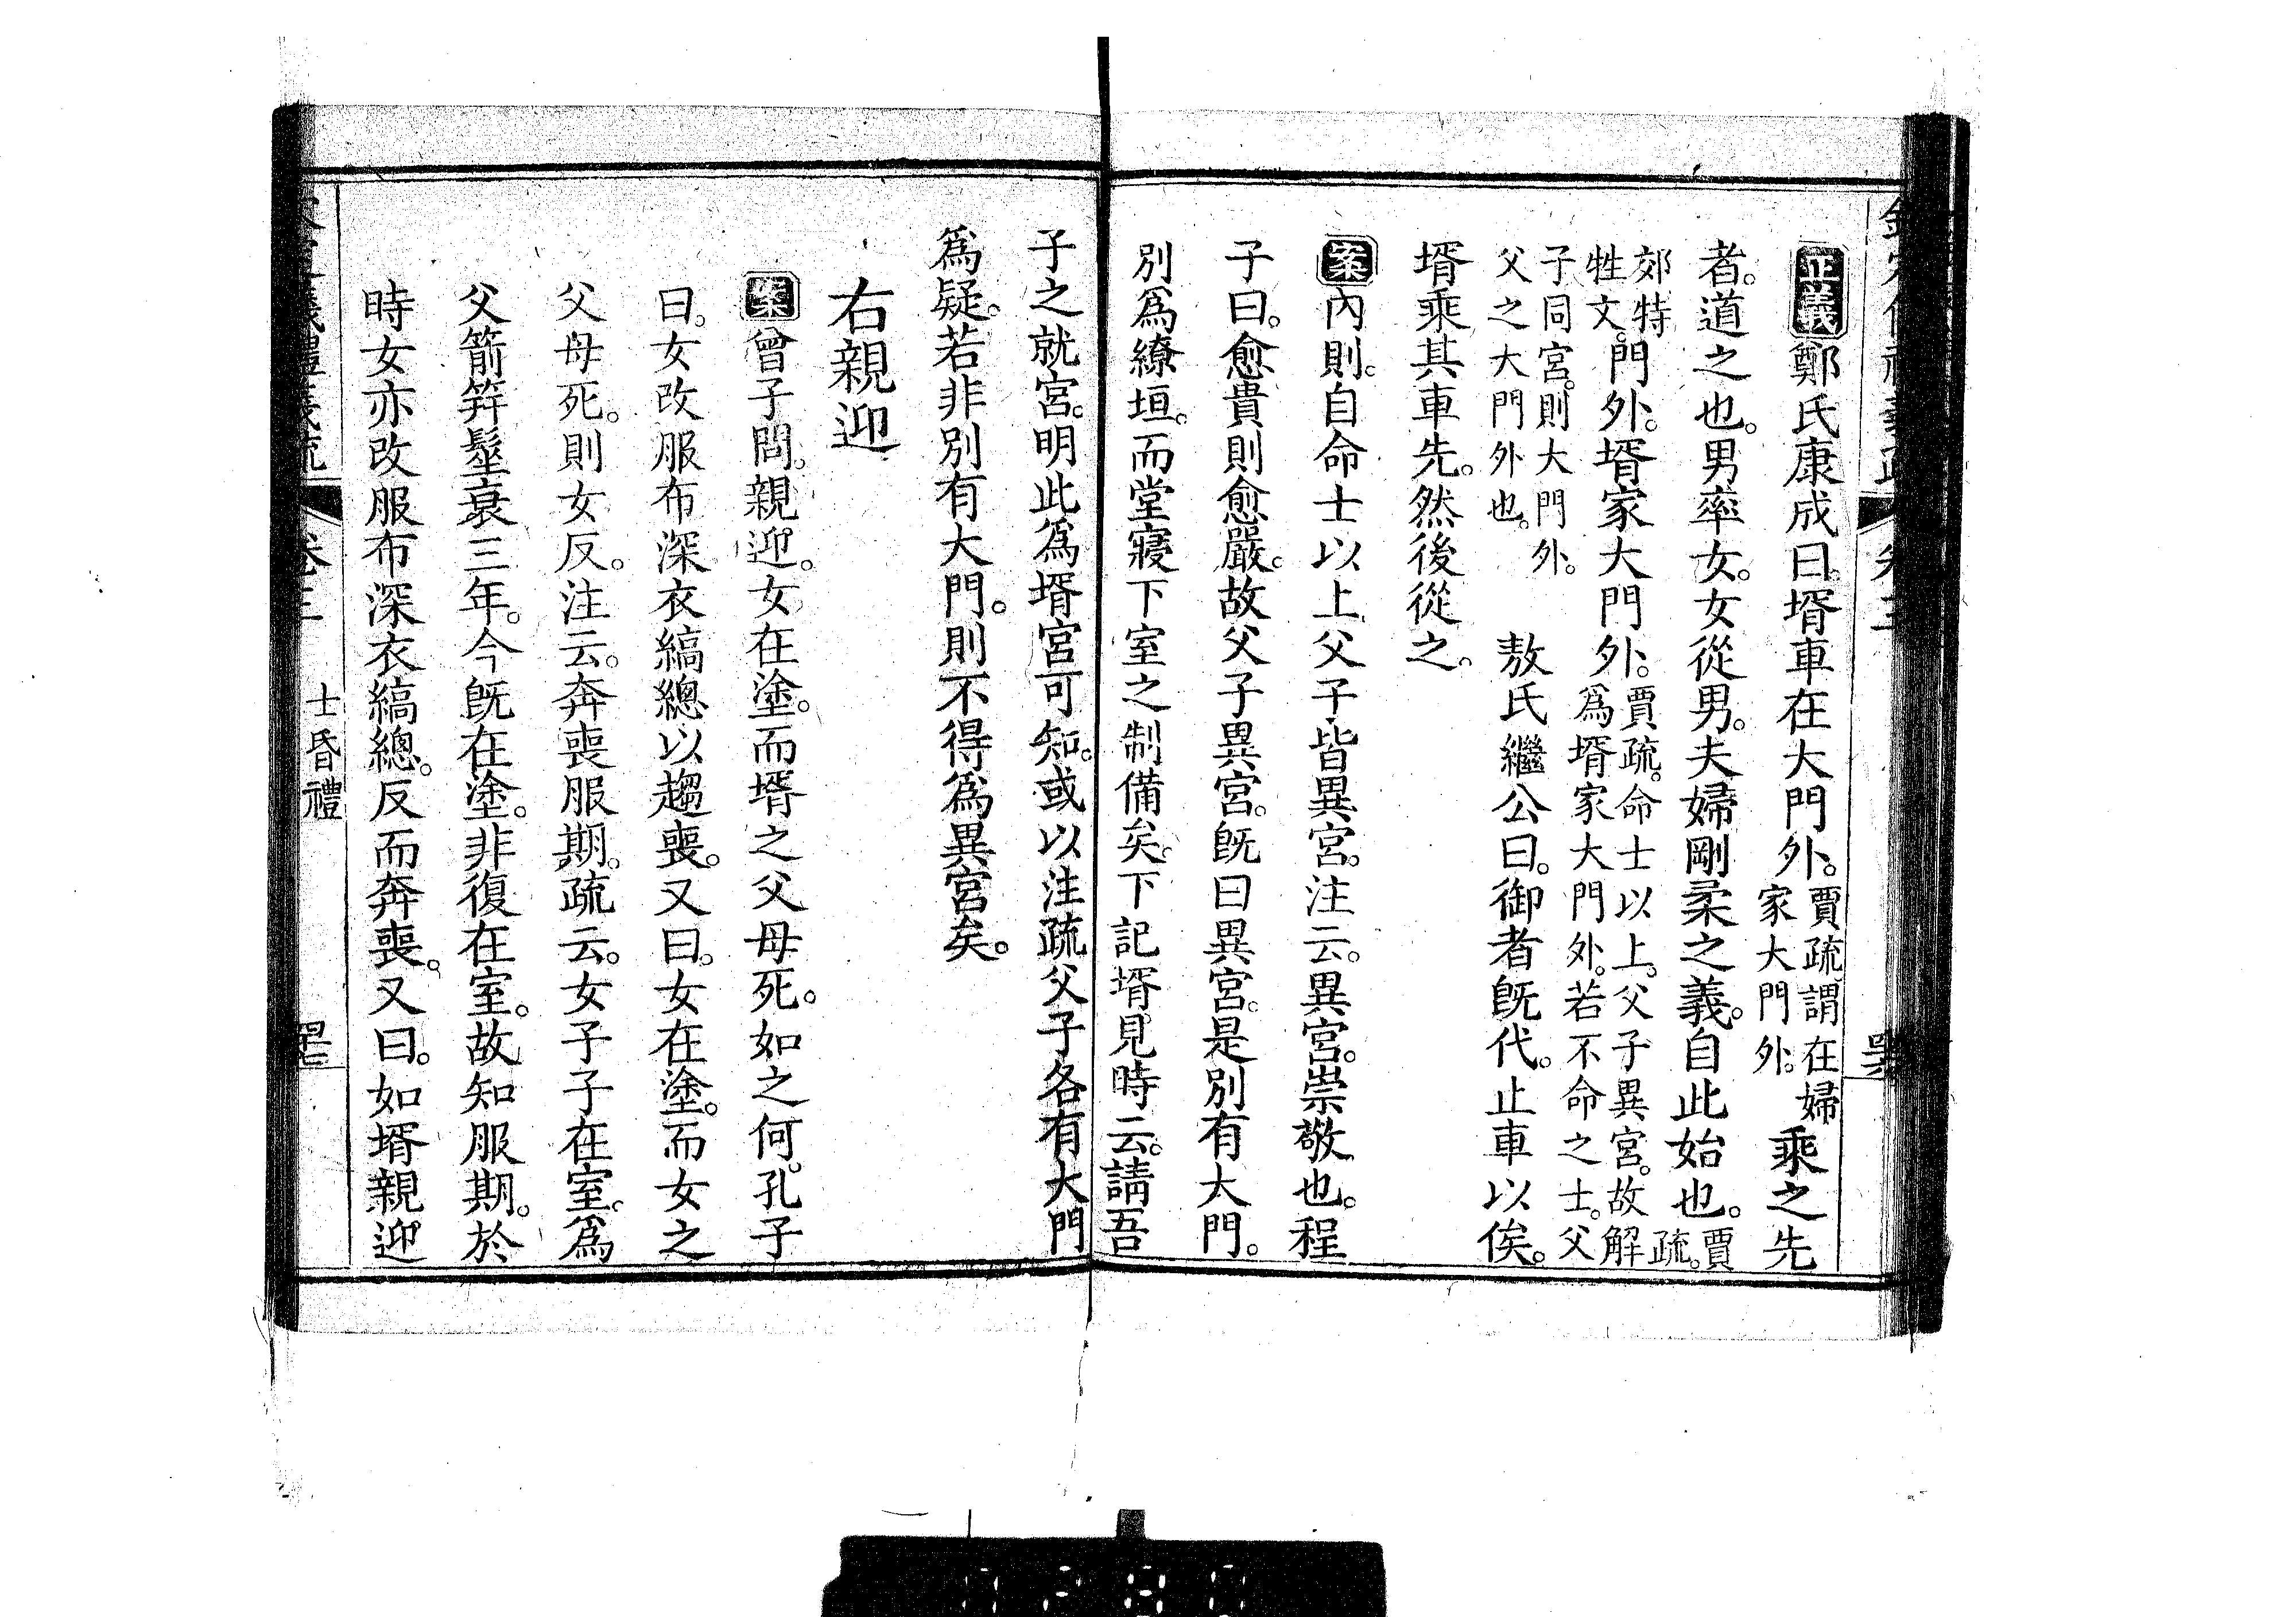 正義鄭氏康成曰。壻車在大門外。賈疏。謂在婦家大門外。乘之先
者。道之也。男率女。女從男。夫婦剛柔之義。自此始也。賈疏。
郊特牲文。門外。壻家大門外。賈疏。命士以上。父子異宮。故解爲壻家大門外。若不命之士。父
子同宮。則大門外。父之大門外也。 敖氏繼公曰。御者旣代。止車以俟。
壻乘其車先。然後從之。
案內則。自命士以上父子皆異宮。注云。異宮。崇敬也。程
子曰。愈貴則愈嚴。故父子異宮。旣曰異宮。是別有大門。
別爲繚垣。而堂寢下室之制備矣。下記壻見時云。請吾
子之就宮。明此爲壻宮可知。或以注疏父子各有大門
爲疑。若非別有大門。則不得爲異宮矣。
右親迎
案曾子問。親迎。女在塗。而壻之父母死。如之何。孔子
曰。女改服布深衣縞總以趨喪。又曰。女在塗。而女之
父母死。則女反。注云。奔喪服期。疏云。女子子在室。爲
父箭筓髽衰三年。今旣在塗。非復在室。故知服期。於
時女亦改服布深衣縞總。反而奔喪。又曰。如壻親迎
儀禮義疏 卷三 士昏禮